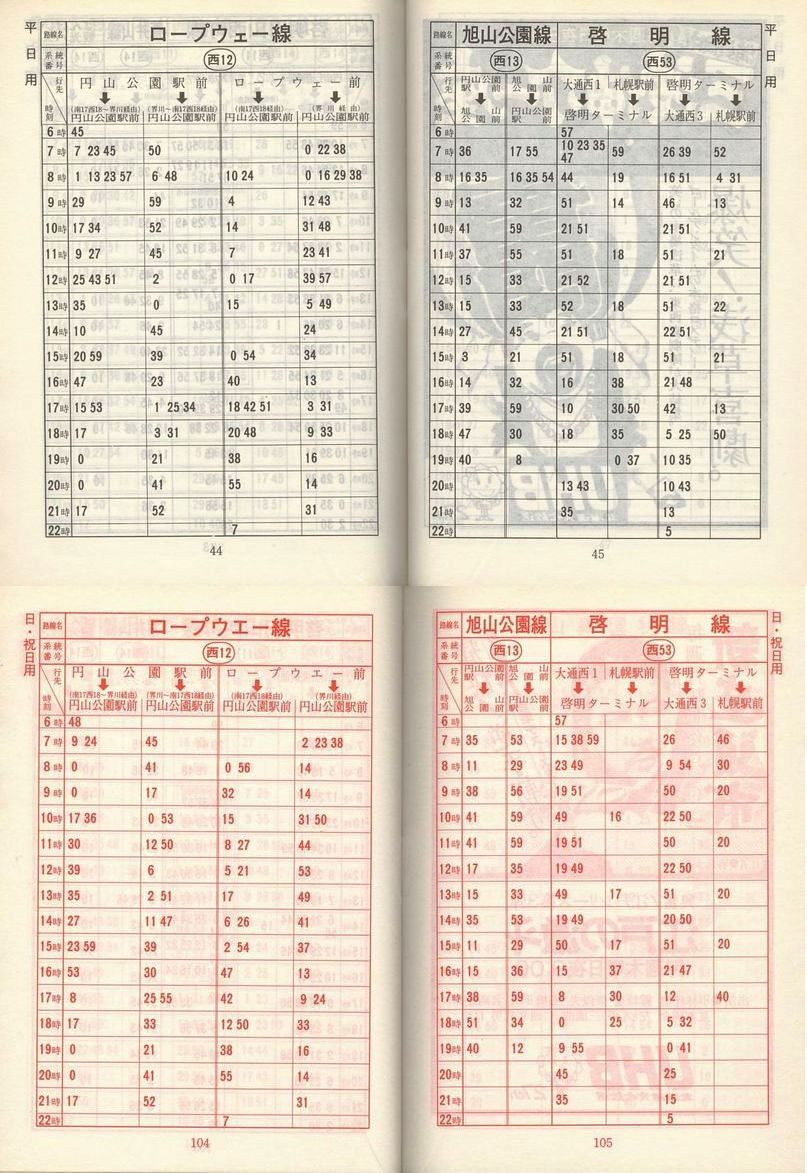 平日用
路線名 ロープウェー線
系統番号 西12
行先 円山公園駅前 ロープウェー前
時刻 (南17西18〜界川経由) 円山公園駅前 (界川〜南17西18経由) 円山公園駅前 (南17西18経由) 円山公園駅前 (界川経由) 円山公園駅前
6時 45
7時 7 23 45 50 0 22 38
8時 1 13 23 57 6 48 10 24 0 16 29 38
9時 29 59 4 12 43
10時 17 34 52 14 31 48
11時 9 27 45 7 23 41
12時 25 43 51 2 0 17 39 57
13時 35 0 15 5 49
14時 10 45 24
15時 20 59 39 0 54 34
16時 47 23 40 13
17時 15 53 1 25 34 18 42 51 3 31
18時 17 3 31 20 48 9 33
19時 0 21 38 16
20時 0 41 55 14
21時 17 52 31
22時 7
44
平日用
路線名 旭山公園線 啓明線
系統番号 西13 西53
行先 円山公園駅前 旭山公園前 大通西1 札幌駅前 啓明ターミナル
時刻 旭山公園前 円山公園駅前 啓明ターミナル 大通西3 札幌駅前
6時 57
7時 36 17 55 10 23 35 47 59 26 39 52
8時 16 35 16 35 54 44 19 16 51 4 31
9時 13 32 51 14 46 13
10時 41 59 21 51 21 51
11時 37 55 51 18 51 21
12時 15 33 21 52 21 51
13時 15 33 52 18 51 22
14時 27 45 21 51 22 51
15時 3 21 51 18 51 21
16時 14 32 16 38 21 48
17時 39 59 10 30 50 42 13
18時 47 30 18 35 5 25 50
19時 40 8 0 37 10 35
20時 13 43 10 43
21時 35 13
22時 5
45
日・祝日用
路線名 ロープウエー線
系統番号 西12
行先 円山公園駅前 ロープウエー前
時刻 (南17西18〜界川経由) 円山公園駅前 (界川〜南17西18経由) 円山公園駅前 (南17西18経由) 円山公園駅前 (界川経由) 円山公園駅前
6時 48
7時 9 24 45 2 23 38
8時 0 41 0 56 14
9時 0 17 32 14
10時 17 36 0 53 15 31 50
11時 30 12 50 8 27 44
12時 39 6 5 21 53
13時 35 2 51 17 49
14時 27 11 47 6 26 41
15時 23 59 39 2 54 37
16時 53 30 47 13
17時 8 25 55 42 9 24
18時 17 33 12 50 33
19時 0 21 38 16
20時 0 41 55 14
21時 17 52 31
22時 7
104
日・祝日用
路線名 旭山公園線 啓明線
系統番号 西13 西53
行先 円山公園駅前 旭山公園前 大通西1 札幌駅前 啓明ターミナル
時刻 旭山公園前 円山公園駅前 啓明ターミナル 大通西3 札幌駅前
6時 57
7時 35 53 15 38 59 26 46
8時 11 29 23 49 9 54 30
9時 38 56 19 51 50 20
10時 41 59 49 16 22 50
11時 41 59 19 51 50 20
12時 17 35 19 49 22 50
13時 15 33 49 17 51 20
14時 35 53 19 49 20 50
15時 11 29 50 17 51 20
16時 15 36 15 37 21 47
17時 38 59 8 30 12 40
18時 51 34 0 25 5 32
19時 40 12 9 55 0 41
20時 45 25
21時 35 15
22時 5
105